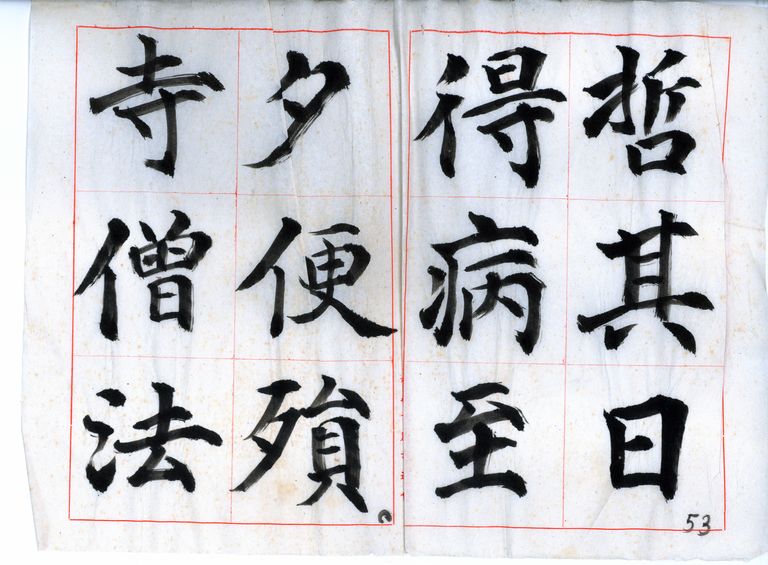 哲其日
得病至
夕便殞
寺僧法
53